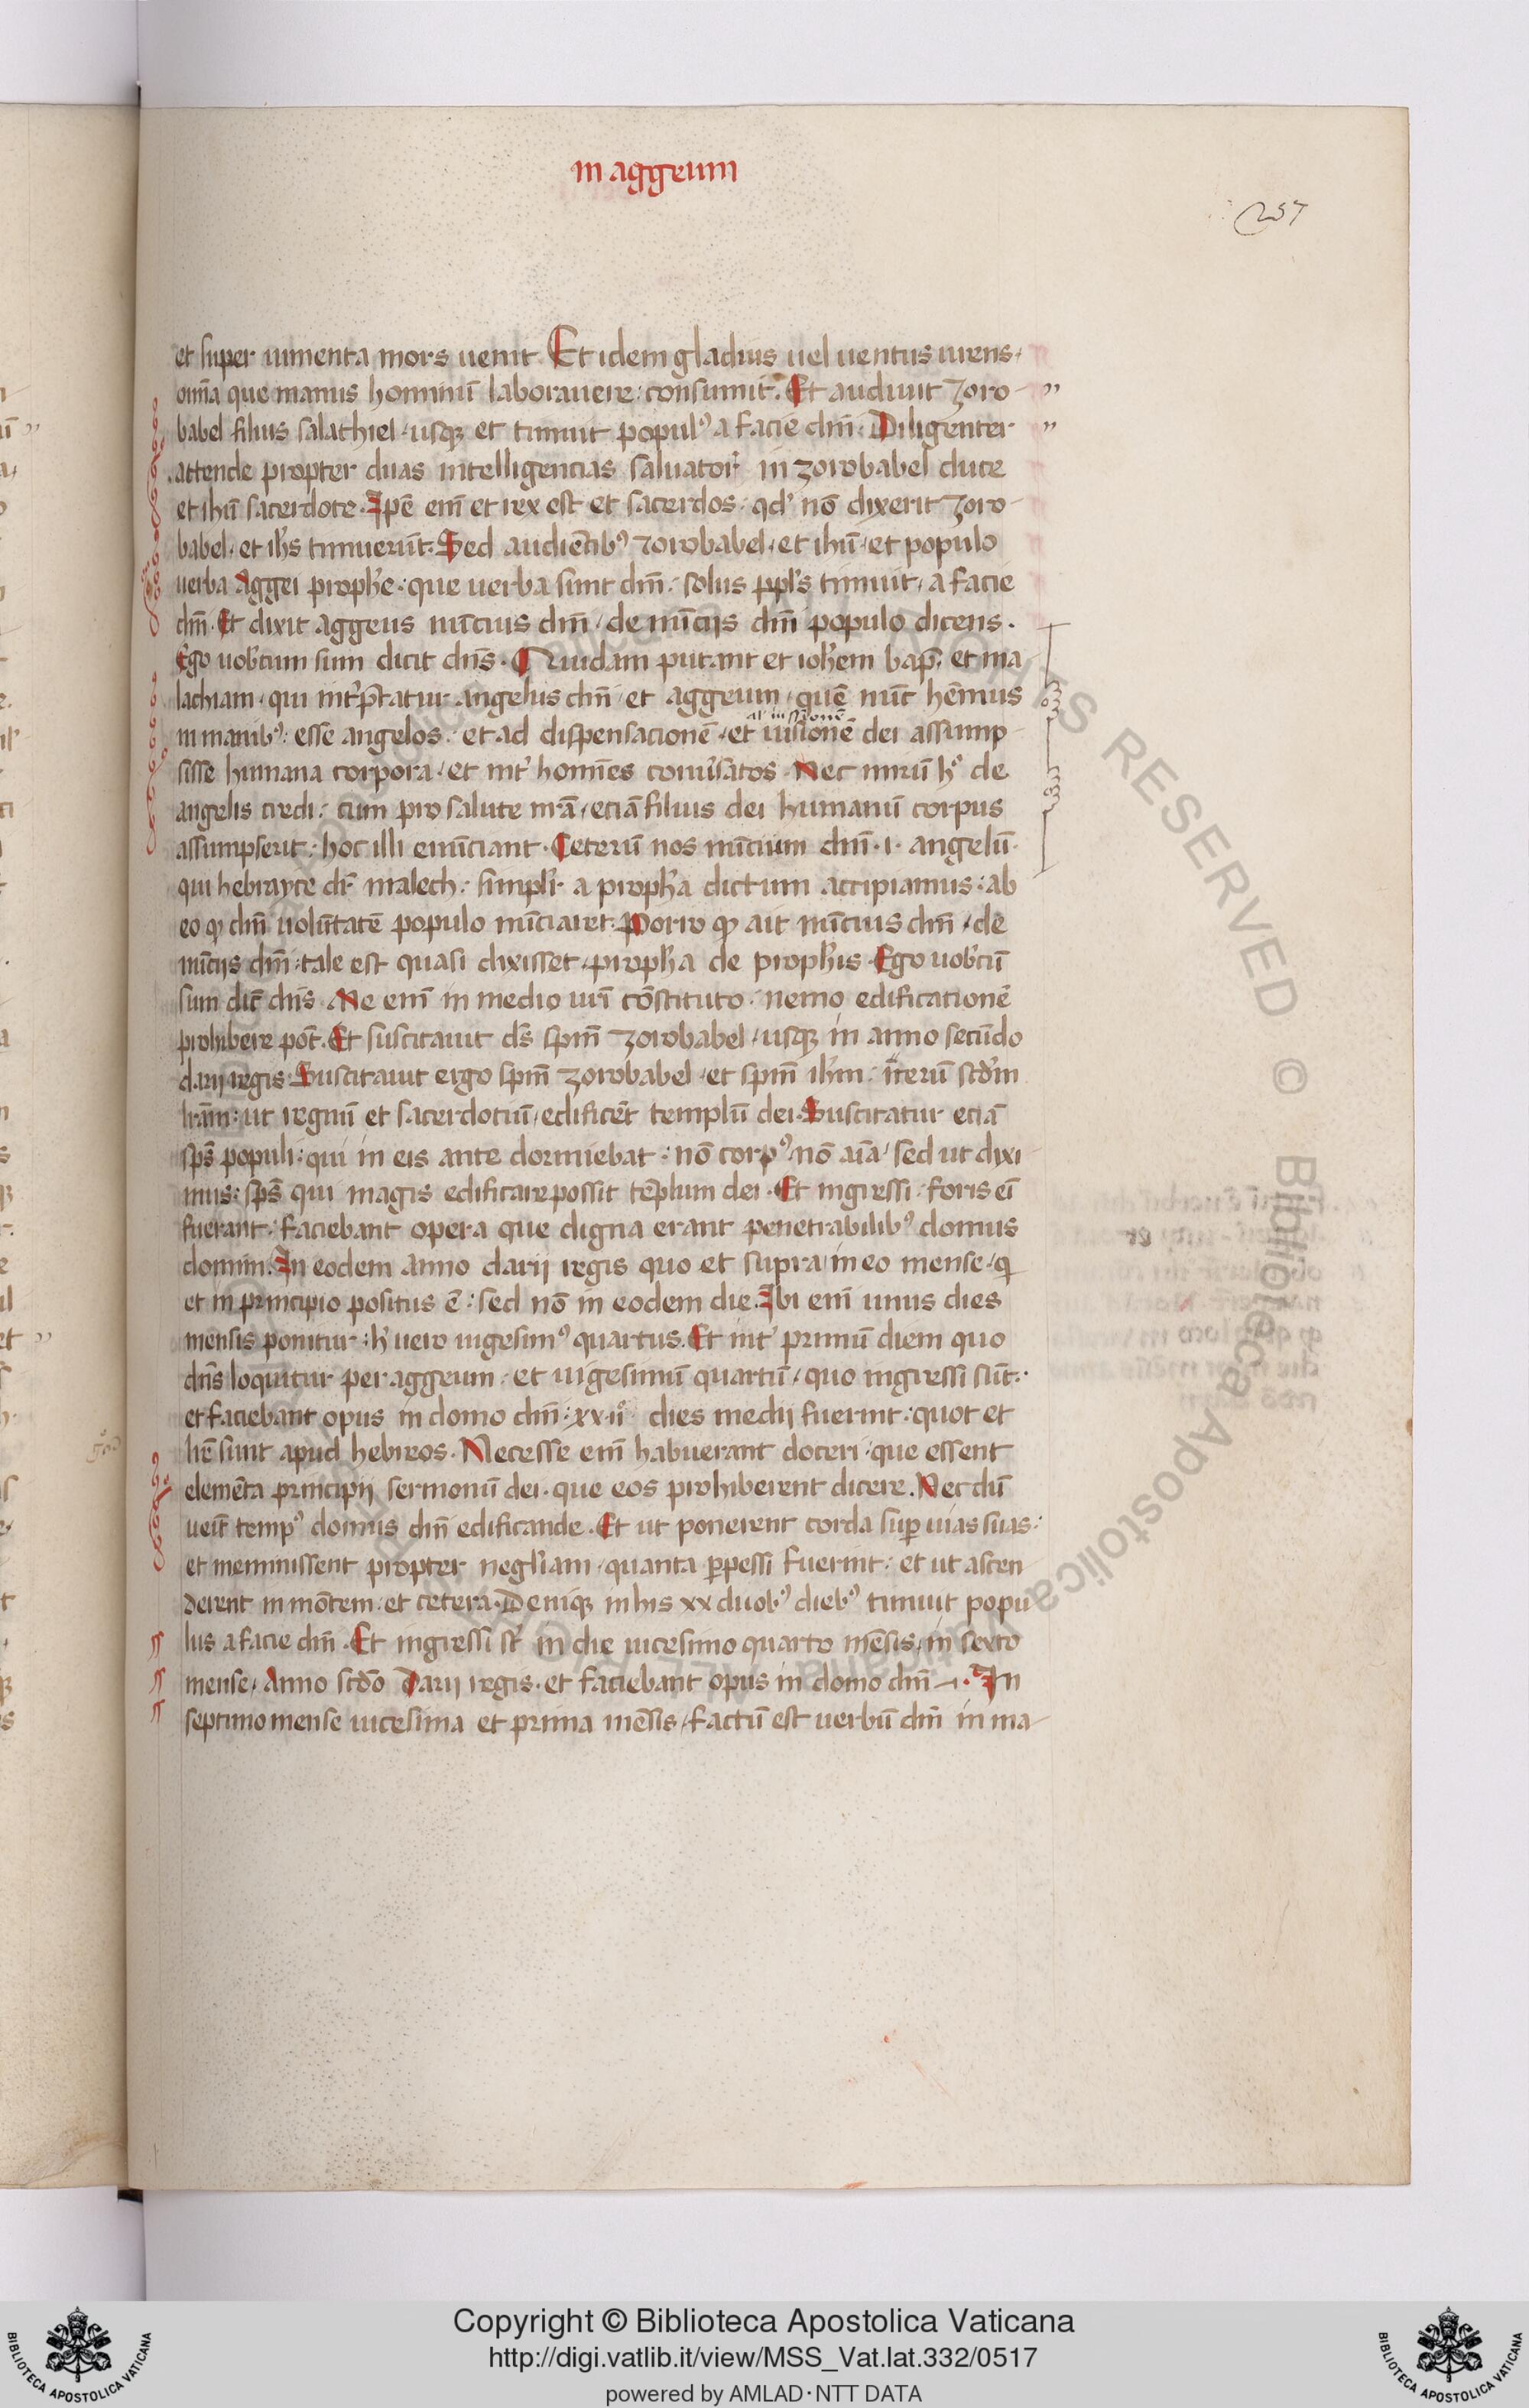 in aggeum
257
et super iumenta mors uenit. Et idem gladius uel uentus urens,
oīa que manus hominū laborauere: consumit. Et audiuit zoro-
babel filius salathiel, usqꝫ et timuit populꝰ a facie dnī. Diligenter
attende propter duas intelligencias saluatorꝭ in zorobabel duce
et ihū sacerdote. Ipē enī et rex est et sacerdos. qd' nō dixerit zoro-
babel. et ihs timuerūt. Sed audiētibꝰ zorobabel, et ihū, et populo
uerba Aggei prophe. que uerba sunt dnī. solus ppls timuit, a facie
dnī. Et dixit aggeus nūcius dnī, de nūciis dnī populo dicens.
Ego uobcum sum dicit dns. Quidam putant et iohem bap. et ma
lachiam, qui int'ptatur angelus dnī, et aggeum, quē nūc hēmus
al' iussionē
in manibꝰ: esse angelos. et ad dispensacionē, et iusionē dei assump-
sisse humana corpora, et int' homēs conu'satos. Nec mirū hꝰ de
angelis credi: cum pro salute nrā, eciā filius dei humanū corpus
assumpserit: hoc illi enūciant. Ceterū nos nūcium dnī .i. angelū
qui hebrayce dr malech: simplr a propha dictum accipiamus: ab
eo qꝫ dnī uolūtatē populo nūciaret. Porro qꝫ ait nūcius dnī, de
nūciis dnī: tale est quasi dixisset, propha de prophis. Ego uobcū
sum dic dns. Me enī in medio urī cōstituto. nemo edificationē
prohibere pōt. Et suscitauit ds spm zorobabel, usqꝫ in anno secūdo
darij regis. Suscitauit ergo spm zorobabel, et spm ihm. iterū scdm
lram: ut regnū et sacerdotiū, edificēt templū dei. Suscitatur eciā
sps populi: qui in eis ante dormiebat: nō corpꝰ, nō aīa, sed ut dixi-
mus: sps qui magis edificare possit tēplum dei. Et ingressi: foris eī
fuerant: faciebant opera que digna erant penetrabilibꝰ domus
domini. In eodem anno darij regis quo et supra, in eo mense, q
et in principio positus ē: sed nō in eodem die. Ibi enī unus dies
mensis ponitur: h' uero uigesimꝰ quartus. Et int' primū diem quo
dns loquitur per aggeum: et uigesimū quartū, quo ingressi sūt.
et faciebant opus in domo dnī: xx.ii dies medij fuerint: quot et
lrē sunt apud hebreos. Necesse enī habuerant doceri: que essent
elemēta principij sermonū dei. que eos prohiberent dicere. Nec dū
ueit tempꝰ domus dnī edificande. Et ut ponerent corda sup uias suas:
et meminissent propter negl'iam, quanta ꝑpessi fuerint: et ut ascen
derent in mōtem: et cetera. Deniqꝫ in his xx duobꝰ diebꝰ timuit popu
lus a facie dnī. Et ingressi st' in die uicesimo quarto mēsis, in sexto
mense, Anno scdo Darij regis. et faciebant opus in domo dnī. In
septimo mense uicesima et prima mēsis, factū est uerbū dnī in ma-
Copyright © Biblioteca Apostolica Vaticana
http://digi.vatlib.it/view/MSS_Vat.lat.332/0517
powered by AMLAD·NTT DATA
BIBLIOTECA APOSTOLICA VATICANA
BIBLIOTECA APOSTOLICA VATICANA